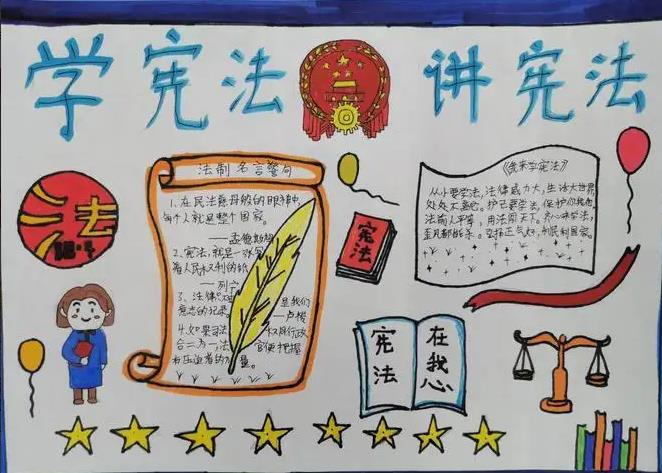 学宪法 讲宪法
法
法制名言警句
1.在民法慈母般的眼神中,
每个人就是整个国家。
——孟德斯鸠
2.宪法,就是一张
着人民权利的纸
——列宁
3、法律
是我们
意志的记录。
——卢梭
4.如果司法
权同行政
合二为一,法
官便把握
有压迫者的力量。
宪法
《我来学宪法》
从小要学法,法律威力大,生活大世界
处处不离它。护己要学法,保护你我他
法前人平等,用法闯天下。
宪法
在我心